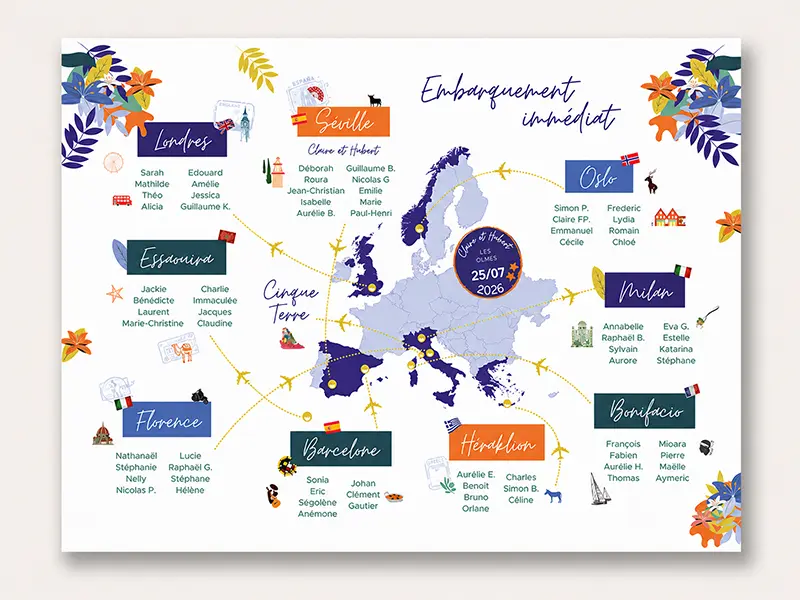 Embarquement
immédiat
Londres
Sarah
Mathilde
Théo
Alicia
Edouard
Amélie
Jessica
Guillaume K.
ESPAÑA
Séville
Claire et Hubert
Déborah
Roura
Jean-Christian
Isabelle
Aurélie B.
Guillaume B.
Nicolas G
Emilie
Marie
Paul-Henri
Oslo
Simon P.
Claire FP.
Emmanuel
Cécile
Frederic
Lydia
Romain
Chloé
Claire et Hubert
LES
OLMES
25/07
2026
Essaouira
Jackie
Bénédicte
Laurent
Marie-Christine
Charlie
Immaculée
Jacques
Claudine
Cinque
Terre
Milan
Annabelle
Raphaël B.
Sylvain
Aurore
Eva G.
Estelle
Katarina
Stéphane
Florence
Nathanaël
Stéphanie
Nelly
Nicolas P.
Lucie
Raphaël G.
Stéphane
Hélène
Barcelone
Sonia
Eric
Ségolène
Anémone
Johan
Clément
Gautier
Héraklion
Aurélie E.
Benoît
Bruno
Orlane
Charles
Simon B.
Céline
Bonifacio
François
Fabien
Aurélie H.
Thomas
Mioara
Pierre
Maëlle
Aymeric